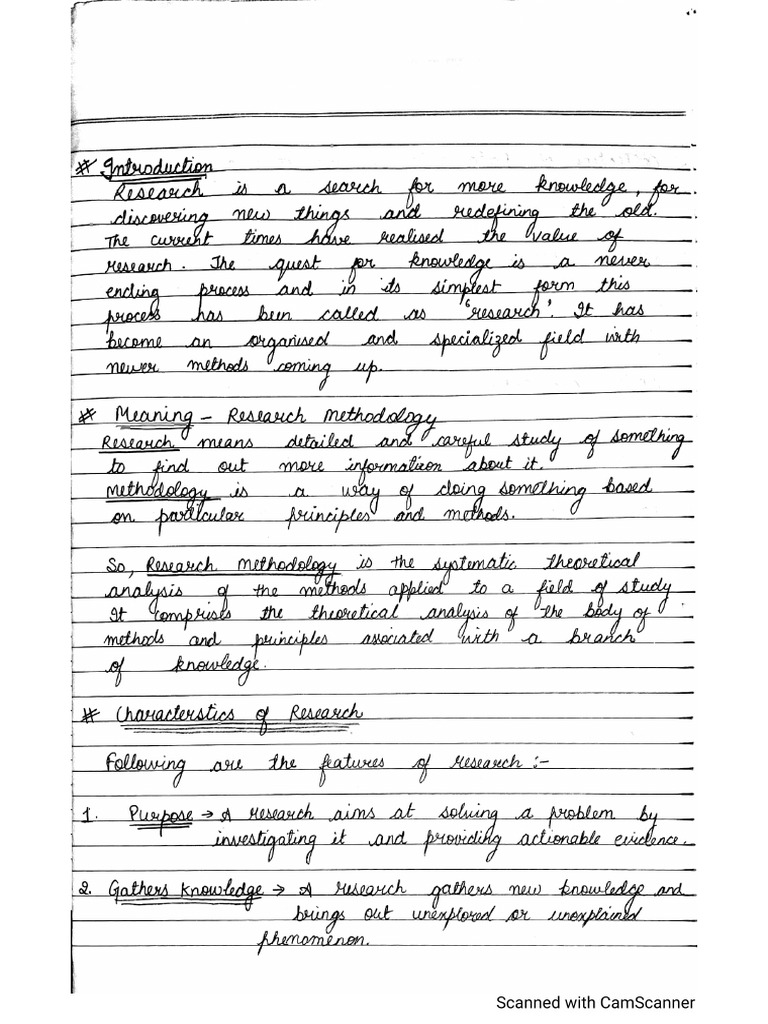 # Introduction
Research is a search for more knowledge, for
discovering new things and redefining the old.
The current times have realised the value of
research. The quest for knowledge is a never
ending process and in its simplest form this
process has been called as 'research'. It has
become an organised and specialized field with
newer methods coming up.
# Meaning - Research Methodology
Research means detailed and careful study of something
to find out more information about it.
Methodology is a way of doing something based
on particular principles and methods.
So, Research Methodology is the systematic theoretical
analysis of the methods applied to a field of study
It comprises the theoretical analysis of the body of
methods and principles associated with a branch
of knowledge.
# Characterstics of Research
Following are the features of research :-
1. Purpose → A research aims at solving a problem by
investigating it and providing actionable evidence.
2. Gathers Knowledge → A research gathers new knowledge and
brings out unexplored or unexplained
phenomenon.
Scanned with CamScanner